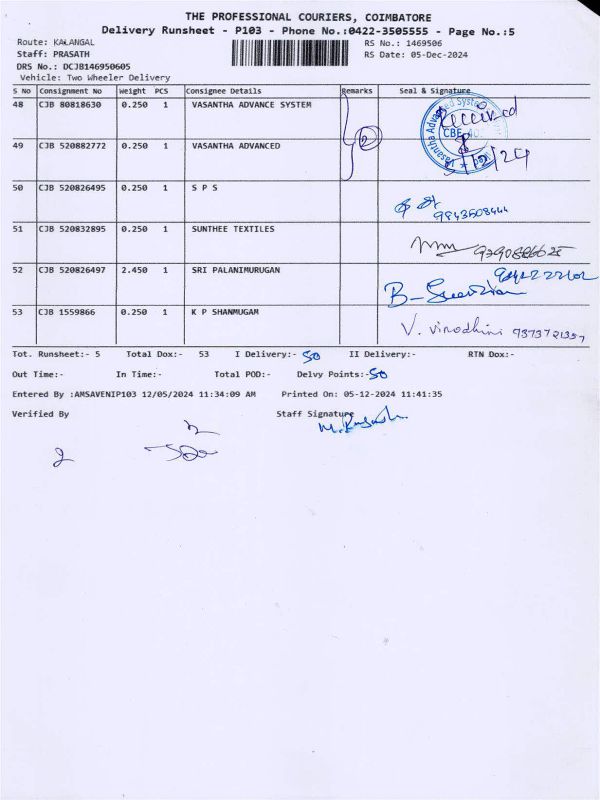 THE PROFESSIONAL COURIERS, COIMBATORE
Delivery Runsheet - P103 - Phone No.:0422-3505555 - Page No.:5
Route: KALANGAL RS No.: 1469506
Staff: PRASATH RS Date: 05-Dec-2024
DRS No.: DCJB146950605
Vehicle: Two Wheeler Delivery
S No Consignment No Weight PCS Consignee Details Remarks Seal & Signature
48 CJB 80818630 0.250 1 VASANTHA ADVANCE SYSTEM
Received
CBE
49 CJB 520882772 0.250 1 VASANTHA ADVANCED 2
50 CJB 520826495 0.250 1 S P S
9843508444
51 CJB 520832895 0.250 1 SUNTHEE TEXTILES
52 CJB 520826497 2.450 1 SRI PALANIMURUGAN
53 CJB 1559866 0.250 1 K P SHANMUGAM
V. Virodhini 9373721357
Tot. Runsheet:- 5 Total Dox:- 53 I Delivery:- 50 II Delivery:- RTN Dox:-
Out Time:- In Time:- Total POD:- Delvy Points:- 50
Entered By :AMSAVENIP103 12/05/2024 11:34:09 AM Printed On: 05-12-2024 11:41:35
Verified By Staff Signature